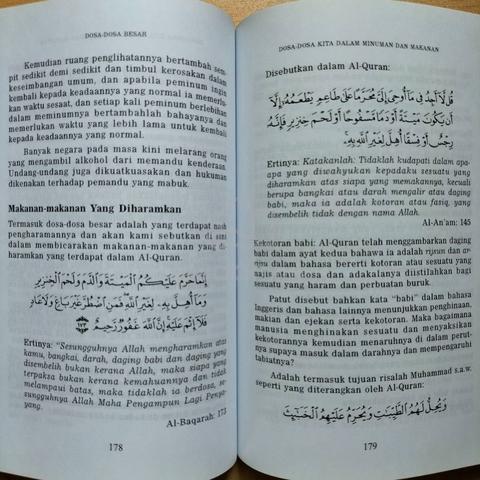 DOSA-DOSA BESAR
Kemudian ruang penglihatannya bertambah sem-
pit sedikit demi sedikit dan timbul kerosakan dalam
keseimbangan umum, dan apabila peminum ingin
kembali kepada keadaannya yang normal ia memerlu-
kan waktu sesaat, dan setiap kali peminum berlebihan
dalam meminumnya bertambahlah bahayanya dan
memerlukan waktu yang lebih lama untuk kembali
kepada keadaannya yang normal.
Banyak negara pada masa kini melarang orang
yang mengambil alkohol dari memandu kenderaan.
Undang-undang juga dikuatkuasakan dan hukuman
dikenakan terhadap pemandu yang mabuk.
Makanan-makanan Yang Diharamkan
Termasuk dosa-dosa besar adalah yang terdapat nash
pengharamannya dan akan kami sebutkan di sini
dalam membicarakan makanan-makanan yang di-
haramkan yang terdapat dalam Al-Quran.
إِنَّمَا حَرَّمَ عَلَيْكُمُ الْمَيْتَةَ وَالدَّمَ وَلَحْمَ الْخِنزِيرِ
وَمَا أُهِلَّ بِهِ لِغَيْرِ اللَّهِ فَمَنِ اضْطُرَّ غَيْرَ بَاغٍ وَلَا عَادٍ
فَلَا إِثْمَ عَلَيْهِ إِنَّ اللَّهَ غَفُورٌ رَّحِيمٌ ١٧٣
Ertinya: "Sesungguhnya Allah mengharamkan atas
kamu, bangkai, darah, daging babi dan daging yang
disembelih bukan kerana Allah, maka siapa yang
terpaksa bukan kerana kemahuannya dan tidak
melampaui batas, maka tidaklah ia berdosa, se-
sungguhnya Allah Maha Pengampun Lagi Penya-
yang.
Al-Baqarah: 173
178
DOSA-DOSA KITA DALAM MINUMAN DAN MAKANAN
Disebutkan dalam Al-Quran:
قُل لَّا أَجِدُ فِي مَا أُوحِيَ إِلَيَّ مُحَرَّمًا عَلَىٰ طَاعِمٍ يَطْعَمُهُ إِلَّا
أَن يَكُونَ مَيْتَةً أَوْ دَمًا مَّسْفُوحًا أَوْ لَحْمَ خِنزِيرٍ فَإِنَّهُ
رِجْسٌ أَوْ فِسْقًا أُهِلَّ لِغَيْرِ اللَّهِ بِهِ
Ertinya: Katakanlah: Tidaklah kudapati dalam apa-
apa yang diwahyukan kepadaku sesuatu yang
diharamkan atas siapa yang memakannya, kecuali
berupa bangkai atau darah mengalir atau daging
babi, maka ia adalah kotoran atau fasiq, yang
disembelih tidak dengan nama Allah.
Al-An'am: 145
Kekotoran babi: Al-Quran telah menggambarkan daging
babi dalam ayat kedua bahawa ia adalah rijsun dan ar-
rijsu dalam bahasa bererti kotoran atau sesuatu yang
najis atau dosa dan adakalanya diistilahkan bagi
sesuatu yang haram dan perbuatan buruk.
Patut disebut bahkan kata "babi" dalam bahasa
Inggeris dan bahasa lainnya menunjukkan penghinaan,
makian dan ejekan serta kekotoran. Maka bagaimana
manusia menghinakan sesuatu dan menyaksikan
kekotorannya kemudian memasukkannya ke dalam perut-
nya supaya masuk dalam darahnya dan mempengaruhi
tabiatnya?
Adalah termasuk tujuan risalah Muhammad s.a.w.
seperti yang diterangkan oleh Al-Quran:
وَيُحِلُّ لَهُمُ الطَّيِّبَاتِ وَيُحَرِّمُ عَلَيْهِمُ الْخَبَائِثَ
179